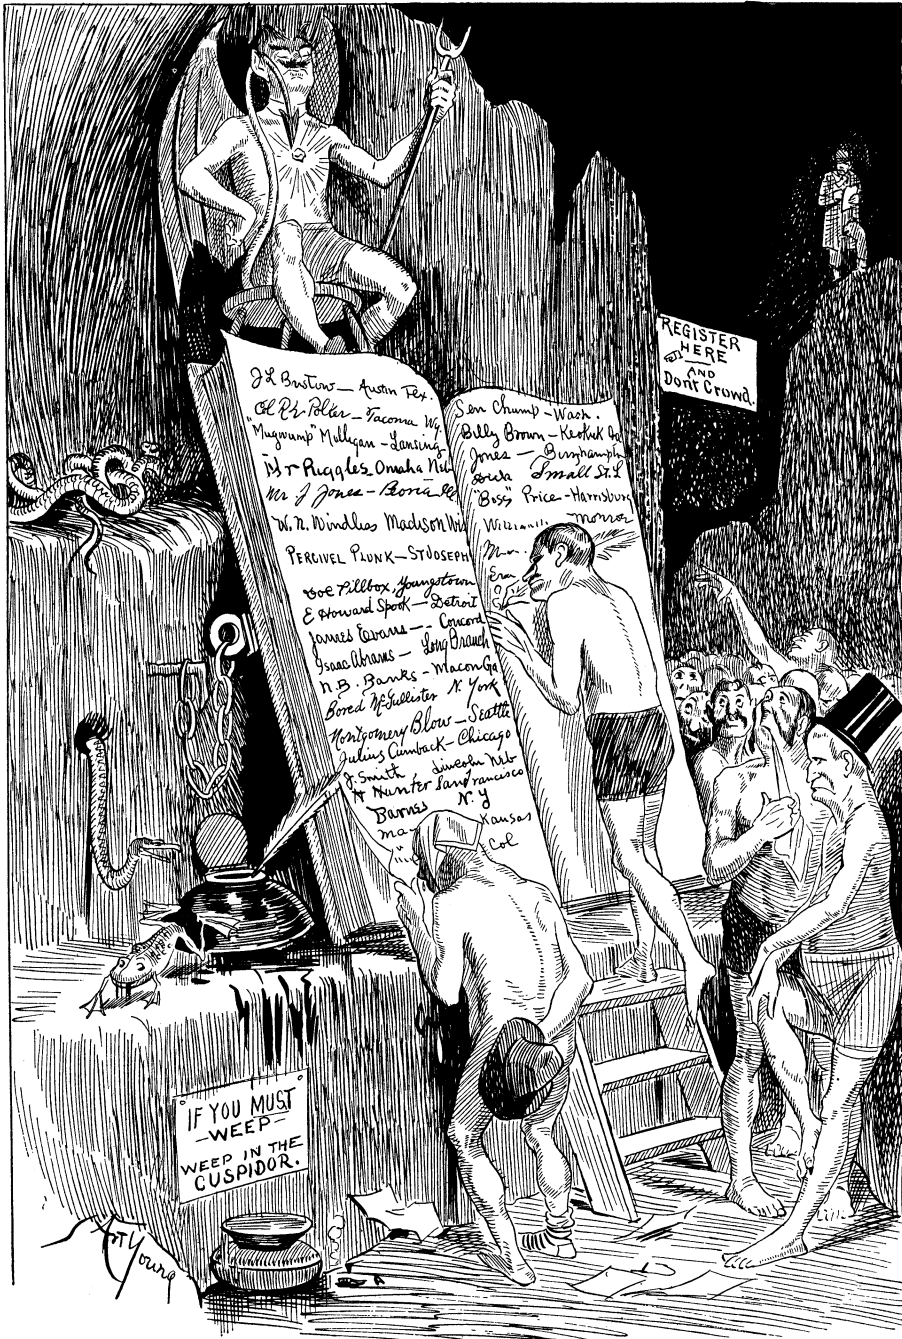 J L Bustow — Austin Tex.
Col R. L. Polter — Tacoma Wy.
"Mugwump" Milligan — Lansing
Mr Ruggles Omaha Neb
Mr J Jones — Peoria Ill
W. N. Windles Madison Wis
PERCIVEL PLUNK — ST JOSEPH
Doc Pillbox, Youngstown
E Howard Spook — Detroit
James Evans — Concord
Isaac Abrams — Long Branch
N. B. Banks — Macon Ga
Bored McGullister N. York
Montgomery Blow — Seattle
Julius Cumback — Chicago
J. Smith Lincoln Neb
A Hunter San Francisco
Barnes N. Y
Ma Kansas
Col
Sen Chump — Wash.
Billy Brown — Keokuk Ia
Jones — Binghampton
Small St. L
"Boss" Price — Harrisburg
REGISTER
HERE
AND
Don't Crowd.
IF YOU MUST
— WEEP —
WEEP IN THE
CUSPIDOR.
Art Young